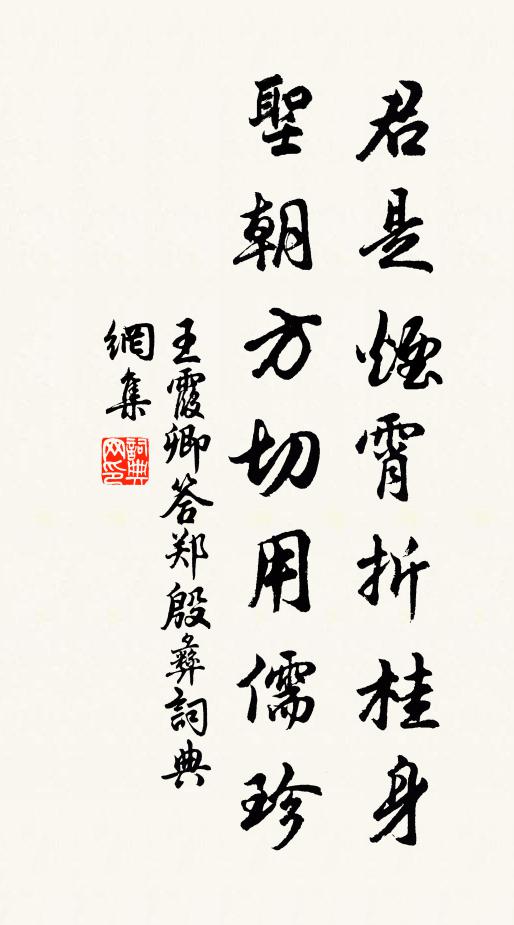 君是煙霄折桂身
聖朝方切用儒珍
王霞卿答郑殷彝詞典
網集
詞典
网印